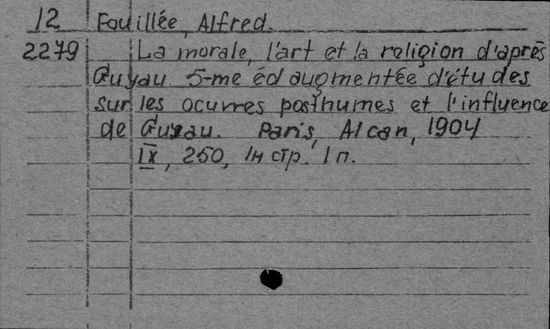 12 Fouillée, Alfred.
2279 La morale, l'art et la religion d'après
Guyau 5-me éd augmentée d'études
sur les ocurres posthumes et l'influence
de Guyau. Paris, Alcan, 1904
IX, 250, Iн стр. 1 п.